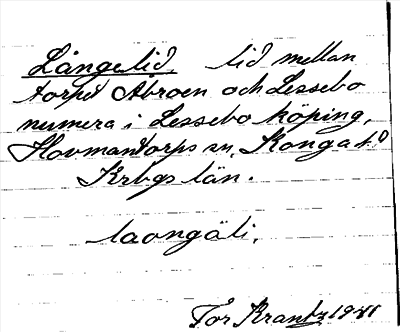 Långelid. lid mellan
torpet Åbroen och Lessebo
numera i Lessebo köping,
Hovmantorps sn, Konga hd
Krbgs län.
laongäli,
Tor Krantz 1941